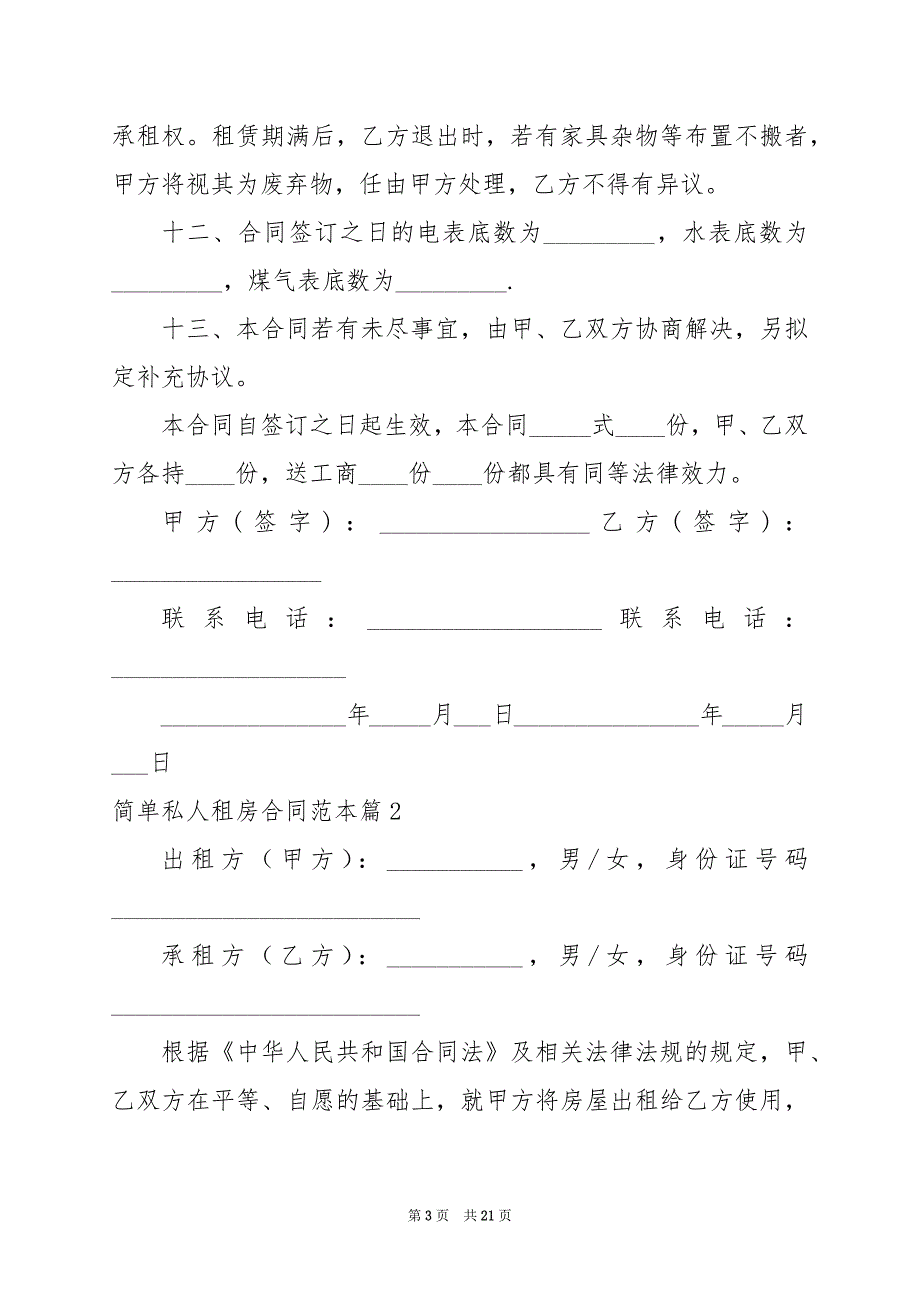 承租权。租赁期满后，乙方退出时，若有家具杂物等布置不搬者，
甲方将视其为废弃物，任由甲方处理，乙方不得有异议。
十二、合同签订之日的电表底数为_________，水表底数为
_________，煤气表底数为_________.
十三、本合同若有未尽事宜，由甲、乙双方协商解决，另拟
定补充协议。
本合同自签订之日起生效，本合同_____式____份，甲、乙双
方各持____份，送工商____份____份都具有同等法律效力。
甲方(签字)：_________________乙方(签字)：
_________________
联系电话：___________________联系电话：
___________________
_______________年_____月___日_______________年_____月
___日
简单私人租房合同范本篇2
出租方（甲方）：___________，男/女，身份证号码
_________________________
承租方（乙方）：___________，男/女，身份证号码
_________________________
根据《中华人民共和国合同法》及相关法律法规的规定，甲、
乙双方在平等、自愿的基础上，就甲方将房屋出租给乙方使用，
第 3 页 共 21 页